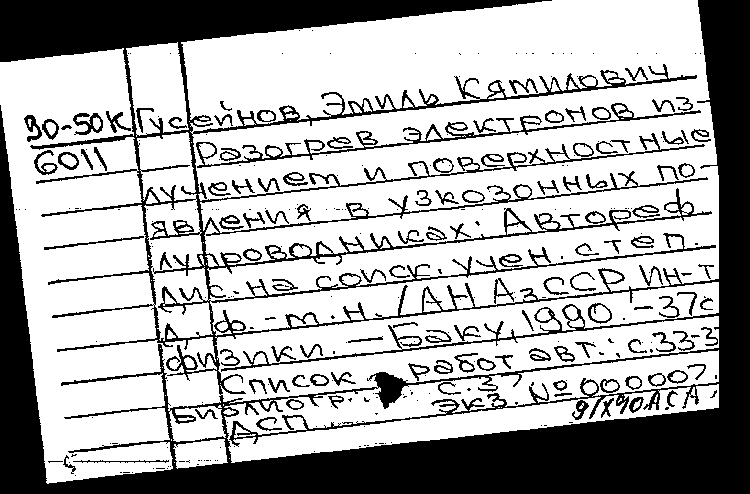 90-50К Гусейнов, Эмиль Кямилович
6011 Разогрев электронов из-
лучением и поверхностные
явления в узкозонных по-
лупроводниках: Автореф.
дис. на соиск. учен. степ.
д. ф.-м.н. / АН АзССР, Ин-т
физики. – Баку, 1990. – 37с
Список работ авт.: с.33-3
Библиогр.: с.37
ДСП Экз. № 000007.
9/X 90 А.С.А.